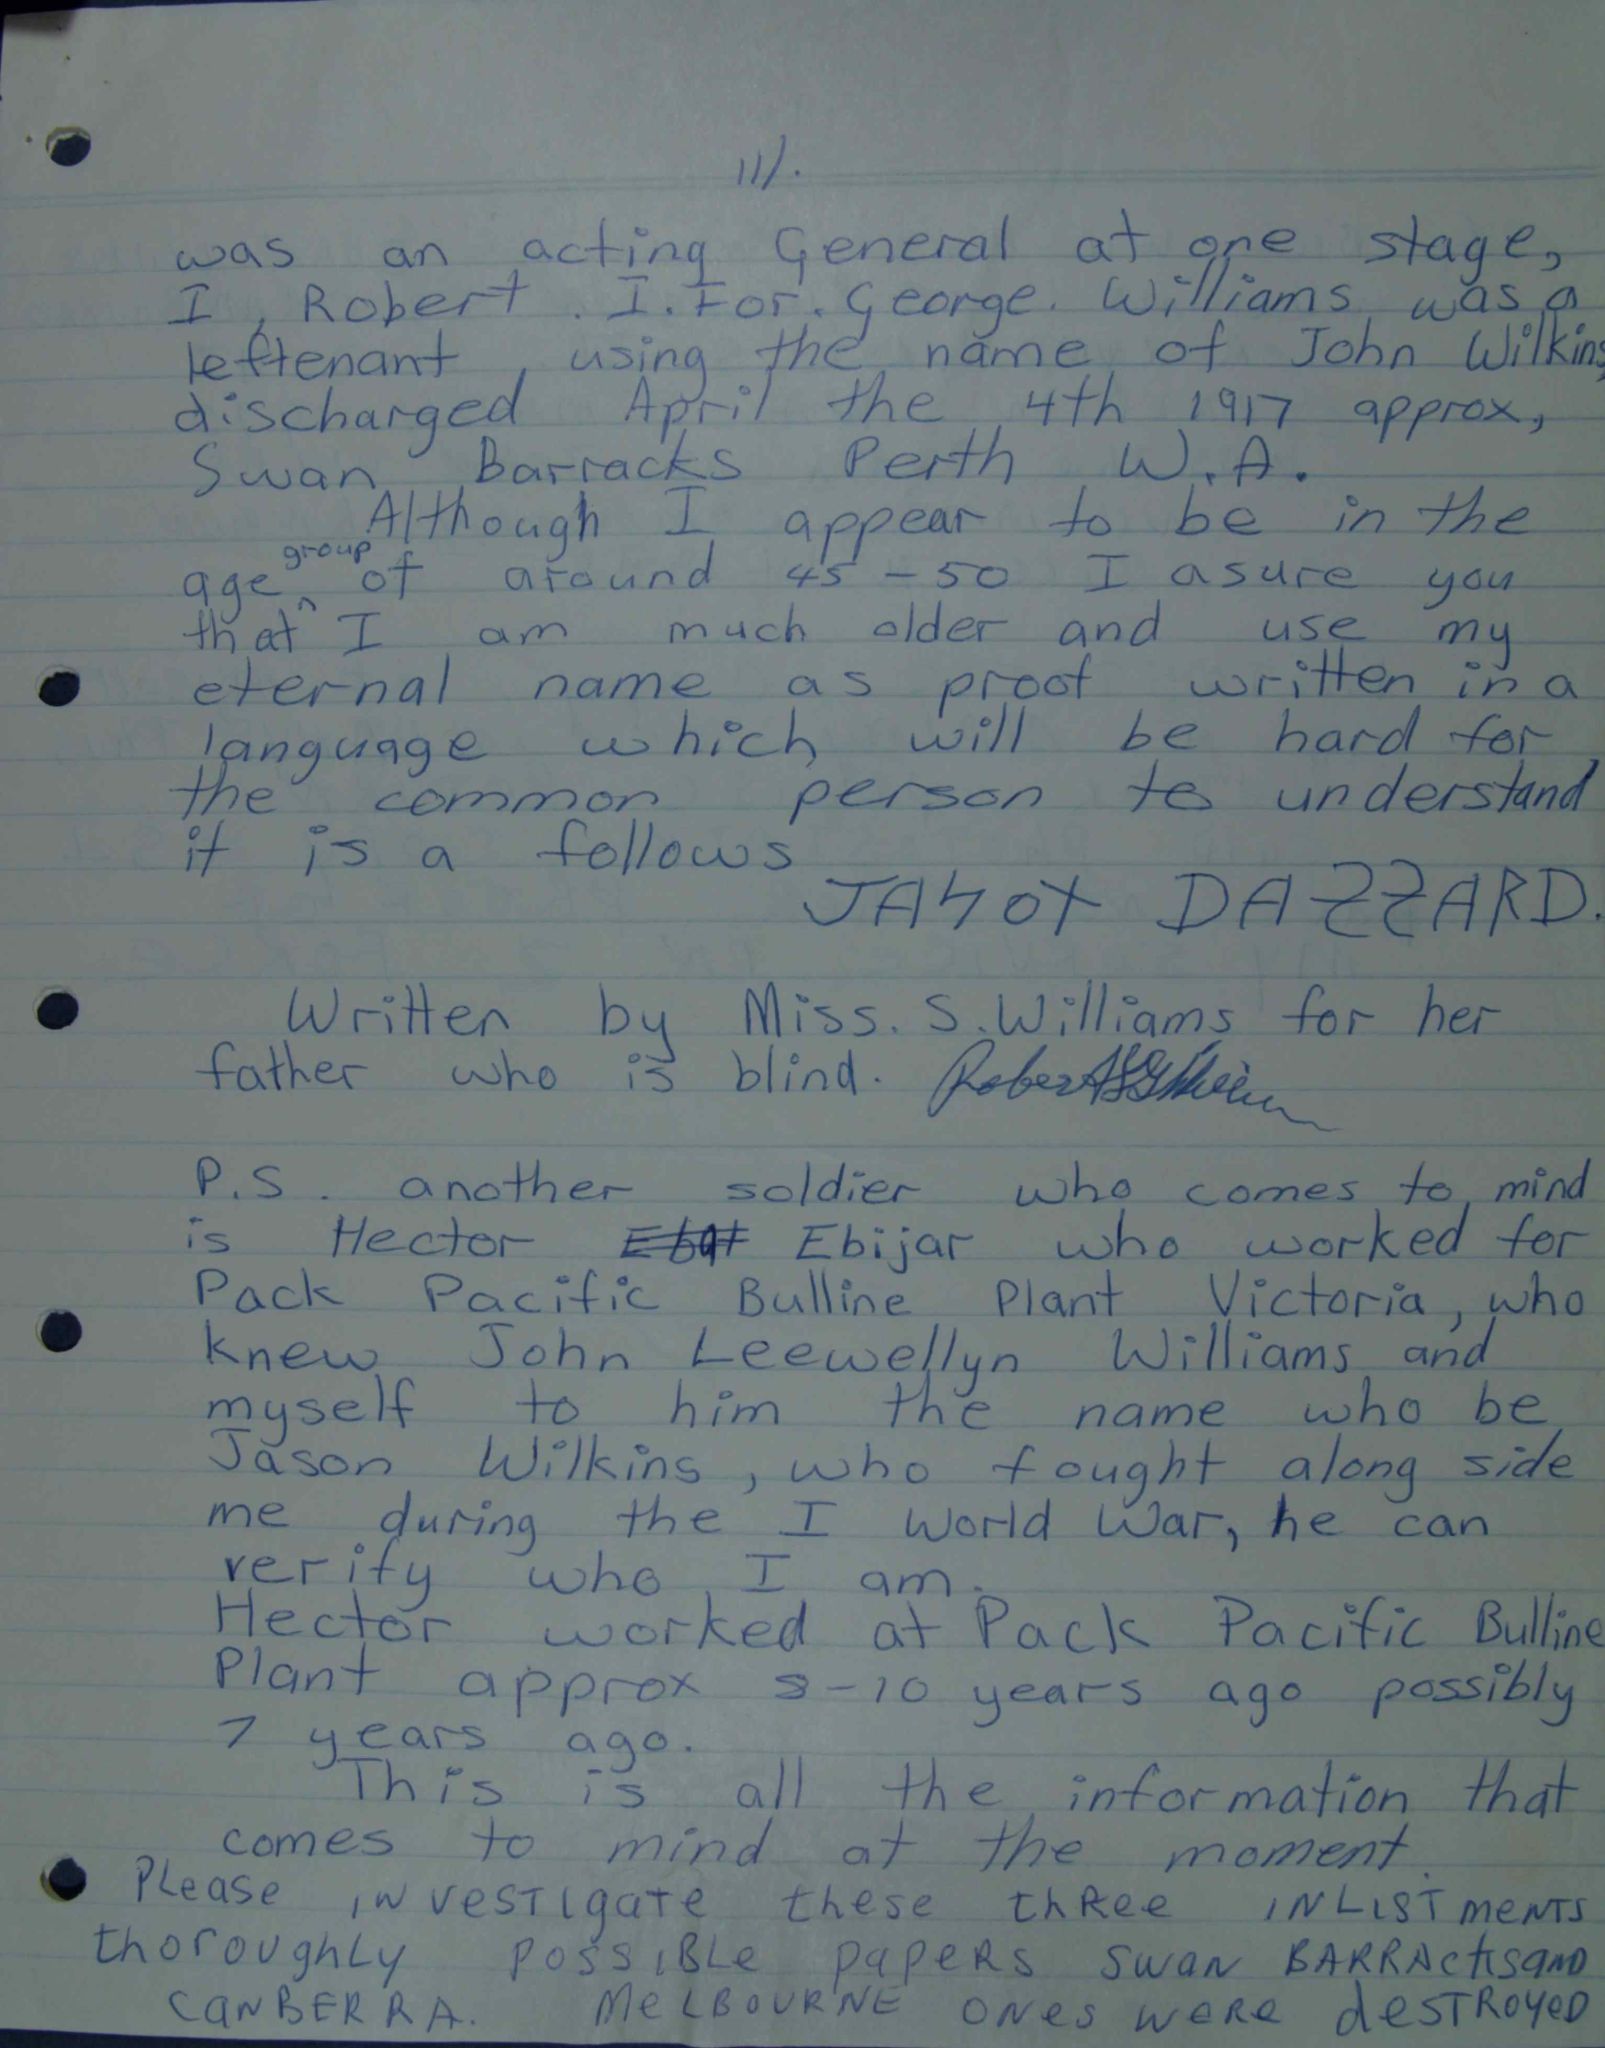 11/.
was an acting General at one stage,
I, Robert. I. For. George. Williams, was a
leftenant, using the name of John Wilkins,
discharged April the 4th 1917 approx,
Swan Barracks Perth W.A.
Although I appear to be in the
age group of around 45-50 I asure you
that I am much older and use my
eternal name as proof written in a
language which will be hard for
the common person to understand
it is a follows
DAZZARD.
Written by Miss. S. Williams for her
father who is blind.
P.S. another soldier who comes to mind
is Hector Ebijar who worked for
Pack Pacific Bulline Plant Victoria, who
knew John Leewellyn Williams and
myself to him the name who be
Jason Wilkins, who fought along side
me during the I World War, he can
verify who I am.
Hector worked at Pack Pacific Bulline
Plant approx 8-10 years ago possibly
7 years ago.
This is all the information that
comes to mind at the moment.
PLease iNVeSTIgate these thRee INLISTmeNTS
thoroughLy POSSIBLe PaPeRS SWaN BARRAckSaND
CaNBERRA. MeLBOURNE ONes WeRe deSTROYeD